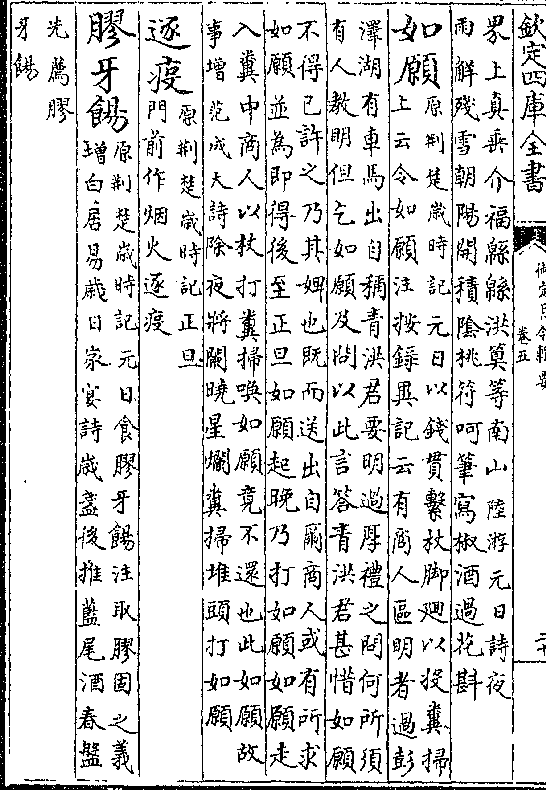 欽定四庫全書
御定月令輯要
卷五
二十
界上真垂介福緜緜洪算等南山 陸游元日詩夜
雨解殘雪朝陽開積陰桃符呵筆寫椒酒過花斟
如願
原荆楚歲時記元日以錢貫繫杖脚廻以投糞掃
上云令如願注按録異記云有商人區明者過彭
澤湖有車馬出自稱青洪君要明過厚禮之問何所須
有人教明但乞如願及問以此言答青洪君甚惜如願
不得已許之乃其婢也既而送出自爾商人或有所求
如願並為即得後至正旦如願起晚乃打如願如願走
入糞中商人以杖打糞掃喚如願竟不還也此如願故
事增范成大詩除夜將闌曉星爛糞掃堆頭打如願
逐疫
原荆楚歲時記正旦
門前作烟火逐疫
膠牙餳
原荆楚歲時記元日食膠牙餳注取膠固之義
增白居易歲日家宴詩歲盞後推藍尾酒春盤
先薦膠
牙餳